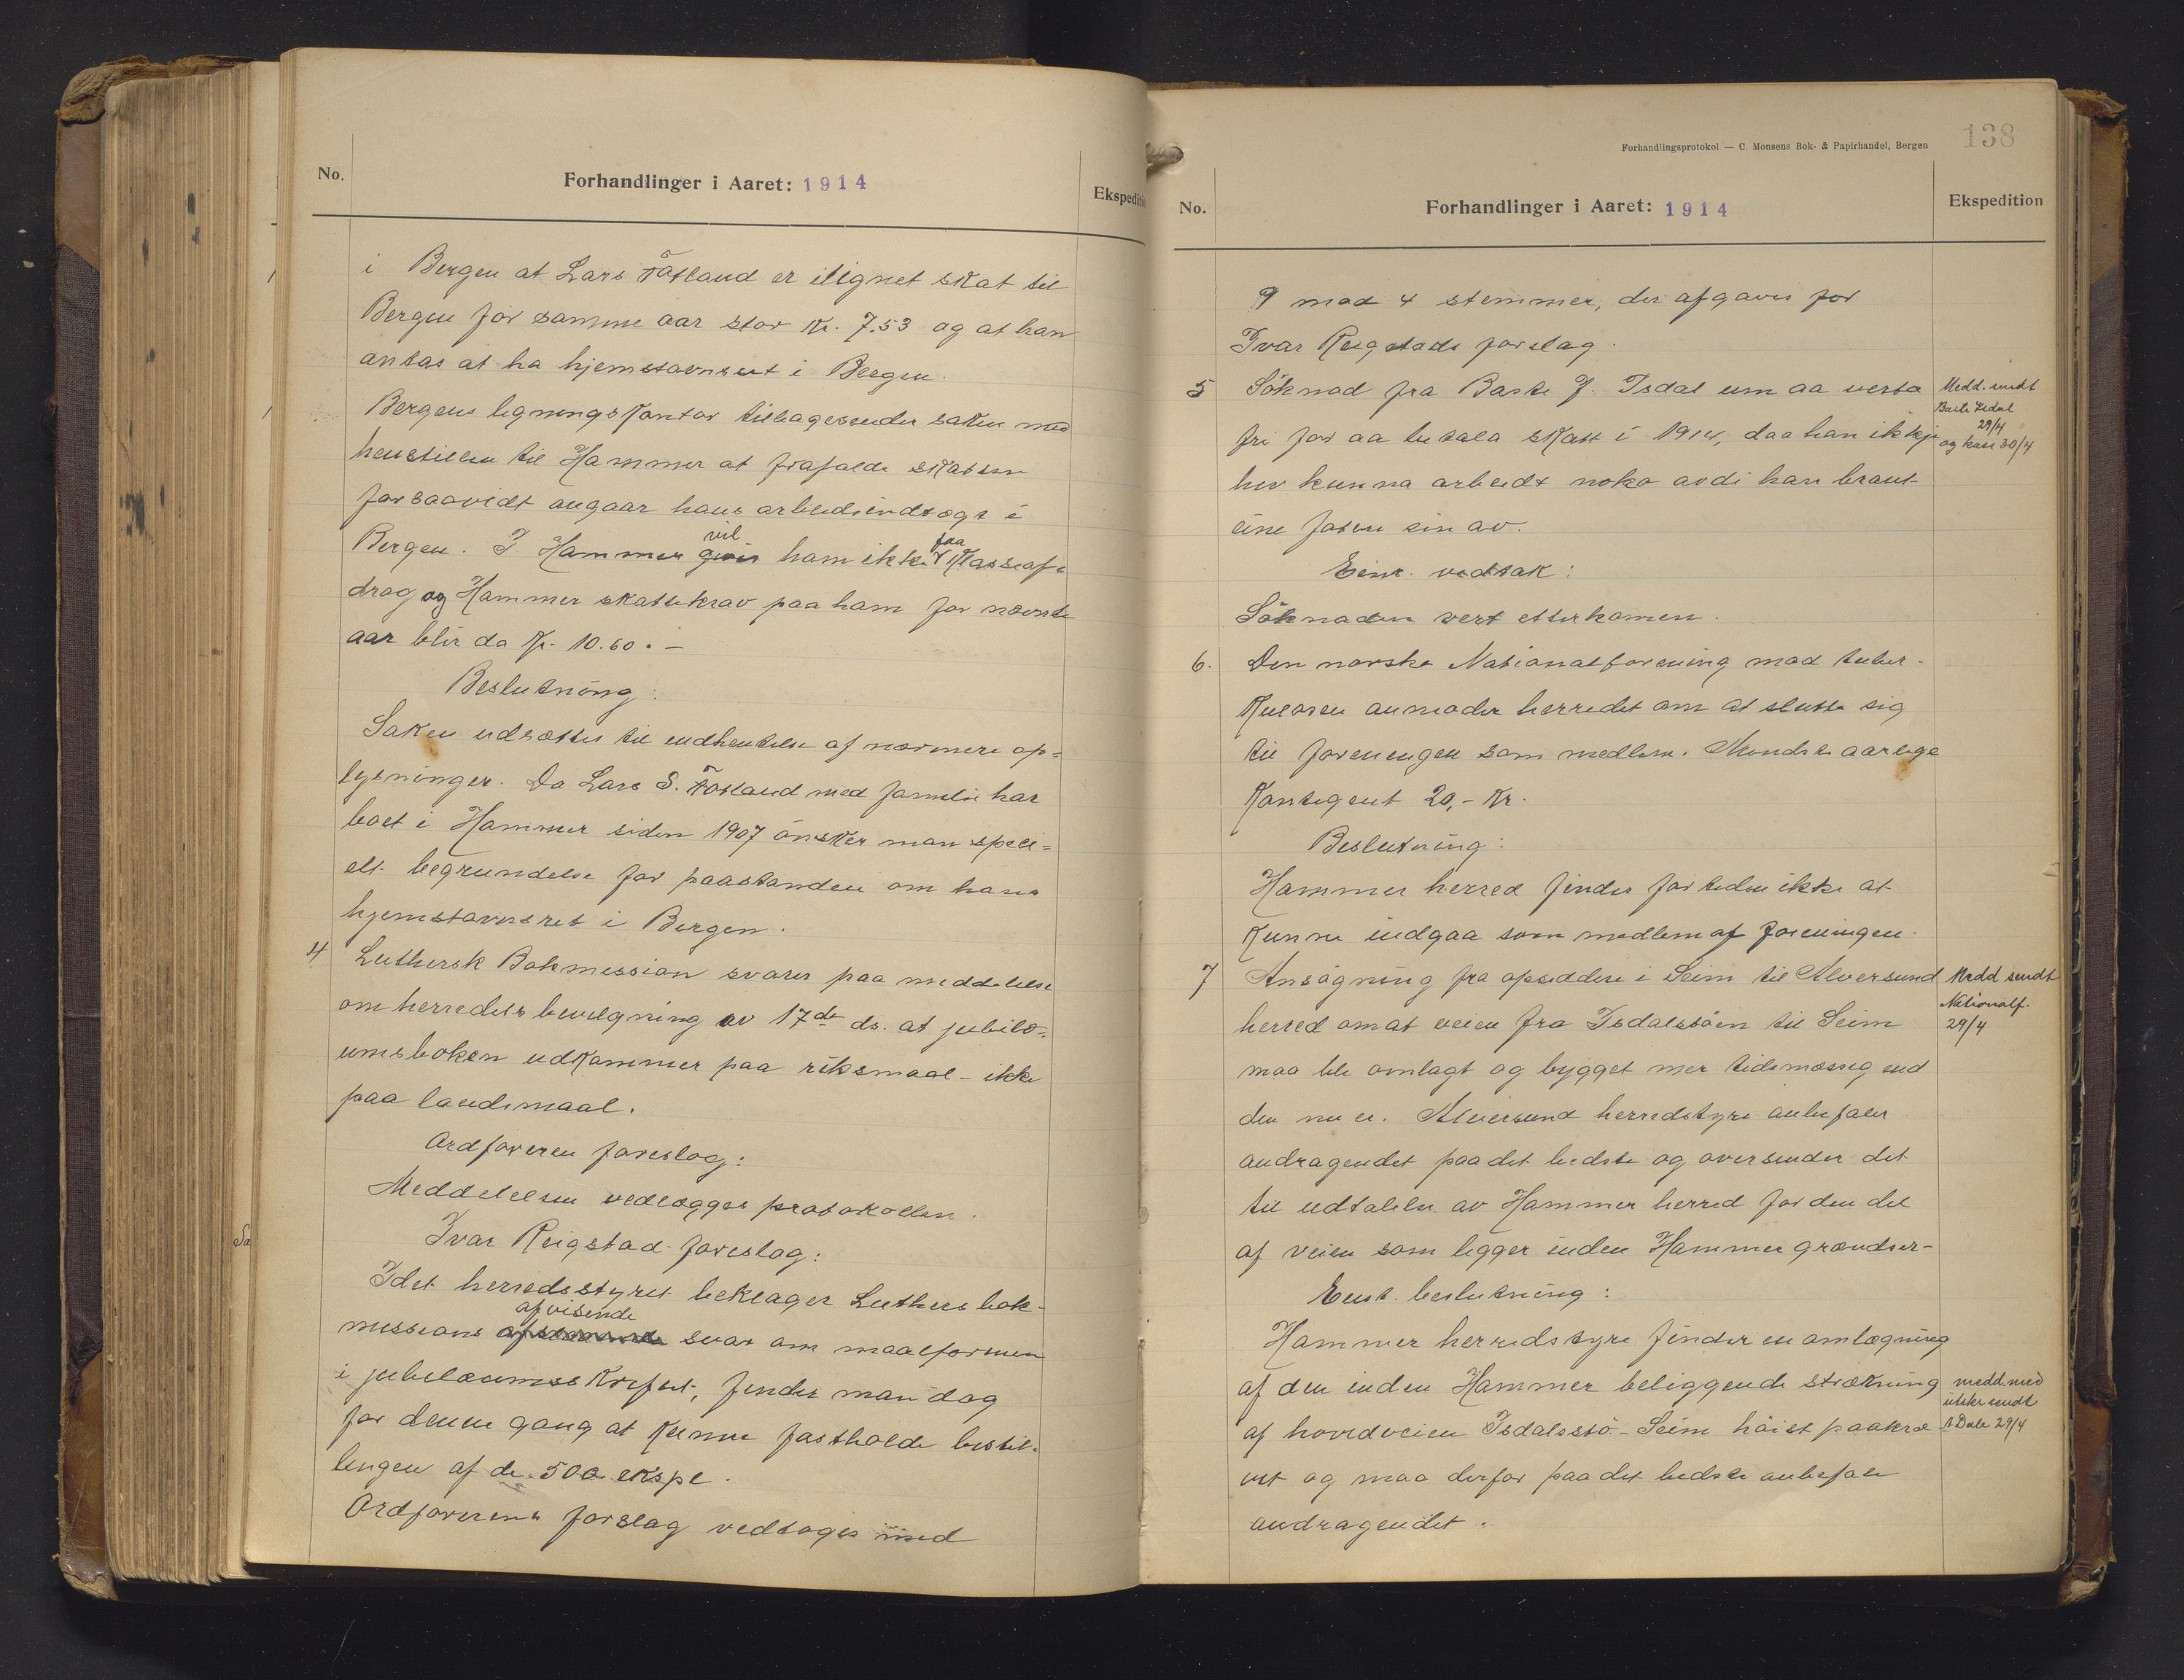 No.
Forhandlinger i Aaret: 1914
Ekspediti
i Bergen at Lars Fosland er ilignet skat til
Bergen for samme aar stor Kr. 7.53 og at han
antas at ha hjemstavnsret i Bergen.
Bergens ligningskontor tilbagesender saken med
henstillen til Hammer at frafalde skatten
forsaavidt angaar hans arbeidsindtægt i
Bergen. I Hammer vil ham ikke faa Klasseaf-
drag og Hammer skattekrav paa ham for nævnte
aar blir da Kr. 10.60. –
Beslutning:
Saken udsættes til indhentelse af nærmere op=
lysninger. Da Lars S. Fosland med familie har
boet i Hammer siden 1907 ønsker man speci=
elt begrundelse for paastanden om hans
hjemstavnsret i Bergen.
4 Luthersk Bokmission svarer paa meddelelse
om herredets bevilgning av 17de ds. at jubilæ=
umsboken udkommer paa riksmaal – ikke
paa landsmaal.
Ordføreren foreslog:
Meddelelsen vedlægges protokollen.
Ivar Reigstad foreslog:
Idet herredsstyret beklager Luthers bok-
missions afvisende svar om maalformen
i jubelæumsskriftet, finder man dog
for denne gang at kunne fastholde bestil-
lingen af de 500 ekspl.
Ordførerens forslag vedtoges med
Forhandlingsprotokol — C. Monsens Bok- & Papirhandel, Bergen
138
No.
Forhandlinger i Aaret: 1914
Ekspedition
9 mod 4 stemmer, der afgaves for
Ivar Reigstads forslag.
5 Søknad fra Baste J. Isdal um aa verta
fri for aa betala skatt i 1914, daa han ikkje
hev kunna arbeidt noko avdi han braut
eine foten sin av.
Medd. sendt
Baste Isdal
29/4
og kass 30/4
Einr. vedtak:
Søknaden vert etterkomen.
6. Den norske Nationalforening mod tuber-
kulosen anmoder herredet om at slutte sig
til foreningen som medlem. Mindste aarlige
Kontigent 20,- Kr.
Beslutning:
Hammer herred finder for tiden ikke at
kunne indgaa som medlem af foreningen.
7 Ansøgning fra opsiddere i Seim til Alversund
herred om at veien fra Isdalstøen til Seim
maa bli omlagt og bygget mer tidsmæssig end
den nu er. Alversund herredstyre anbefaler
andragendet paa det bedste og oversender det
til udtalelse av Hammer herred for den del
af veien som ligger inden Hammer grændser-
Medd sendt
Nationalf.
29/4
Enst. beslutning:
Hammer herredstyre finder en omlægning
af den inden Hammer beliggende strækning
af hovedveien Isdalsstø - Seim høist paakræ-
vet og maa derfor paa det bedste anbefale
andragendet.
medd. med
utskr sendt
A Dale 29/4